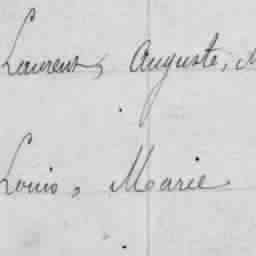 Laurent, Auguste, M
Louis, Marie